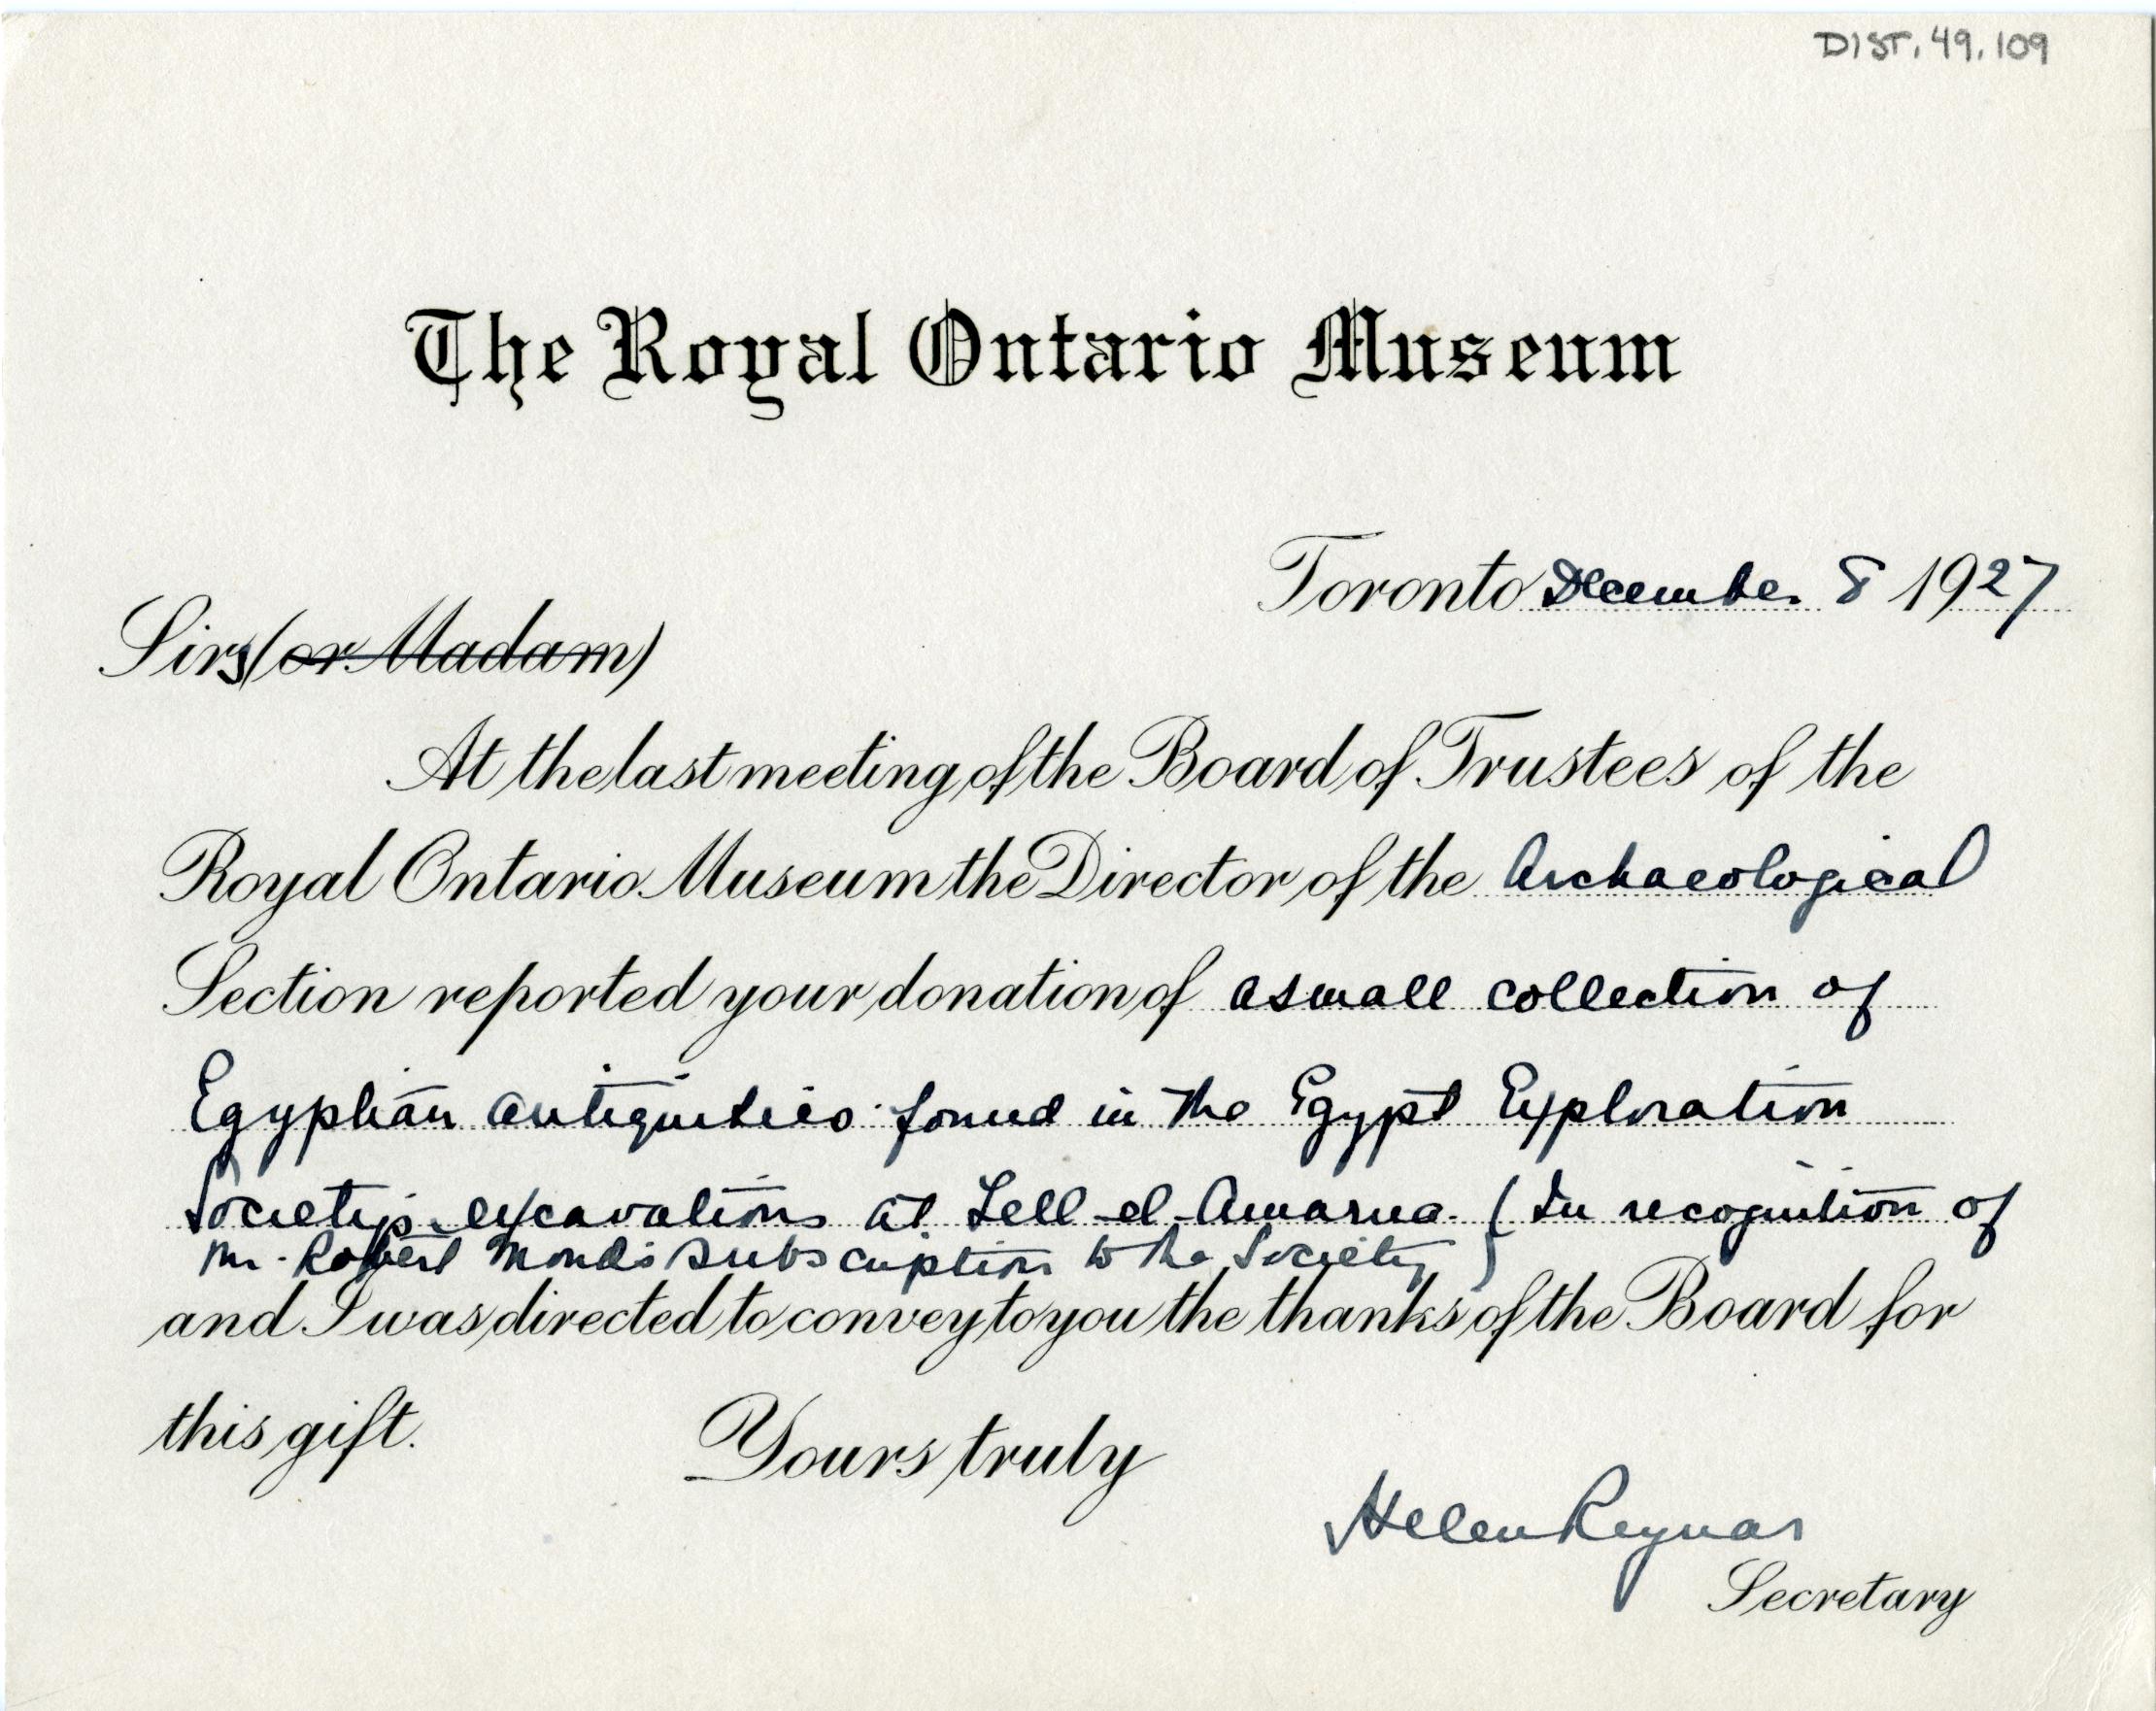 DIST. 49. 109
The Royal Ontario Museum
Toronto December 8 1927
Sirs (or Madam)
At the last meeting of the Board of Trustees of the
Royal Ontario Museum the Director of the Archaeological
Section reported your donation of a small collection of
Egyptian antiquities found in the Egypt Exploration
Society's excavations at Tell-el-Amarna. (In recognition of
Mr. Robert Mond's subscription to the Society)
and I was directed to convey to you the thanks of the Board for
this gift. Yours truly
Helen Reynar
Secretary